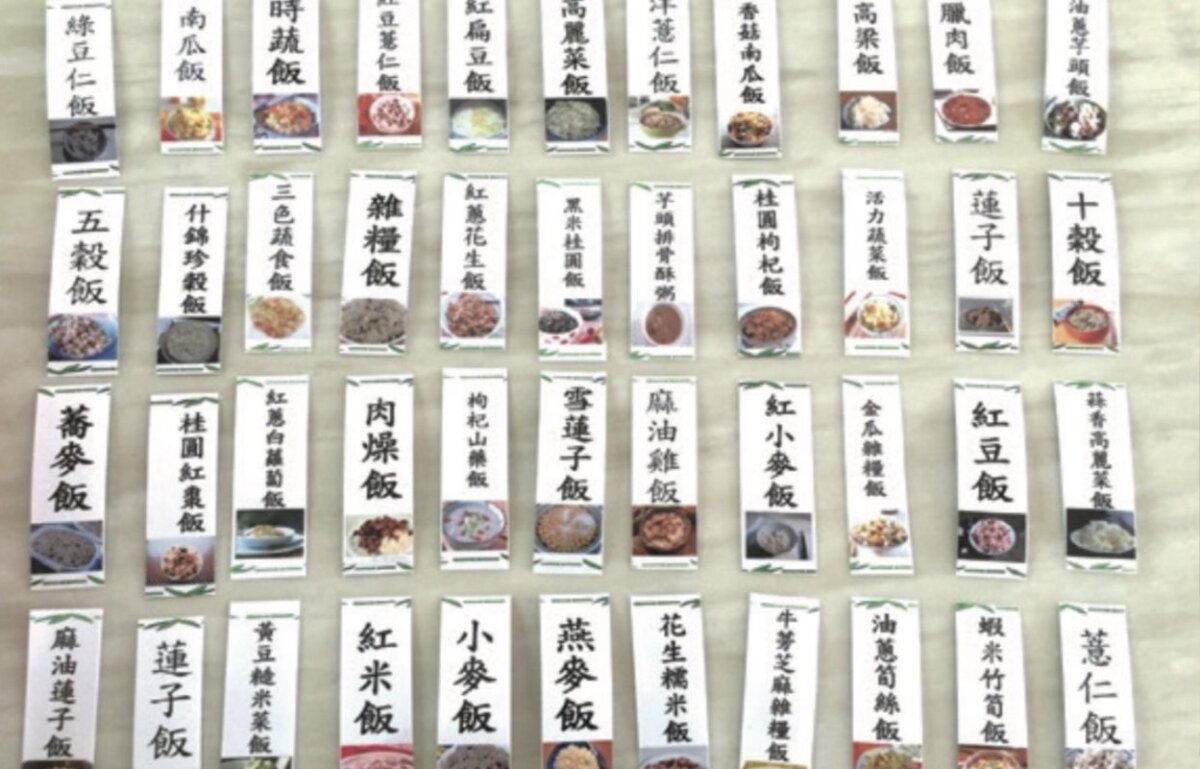 綠豆仁飯
南瓜飯
時蔬飯
紅豆薏仁飯
紅扁豆飯
高麗菜飯
洋薏仁飯
香菇南瓜飯
高粱飯
臘肉飯
油蔥芋頭飯
五穀飯
什錦珍穀飯
三色蔬食飯
雜糧飯
紅蔥花生飯
黑米桂圓飯
芋頭排骨酥粥
桂圓枸杞飯
活力蔬菜飯
蓮子飯
十穀飯
蕎麥飯
桂圓紅棗飯
紅蔥白蘿蔔飯
肉燥飯
枸杞山藥飯
雪蓮子飯
麻油雞飯
紅小麥飯
金瓜雜糧飯
紅豆飯
蒜香高麗菜飯
麻油蓮子飯
蓮子飯
黃豆糙米菜飯
紅米飯
小麥飯
燕麥飯
花生糯米飯
牛蒡芝麻雜糧飯
油蔥筍絲飯
蝦米竹筍飯
薏仁飯